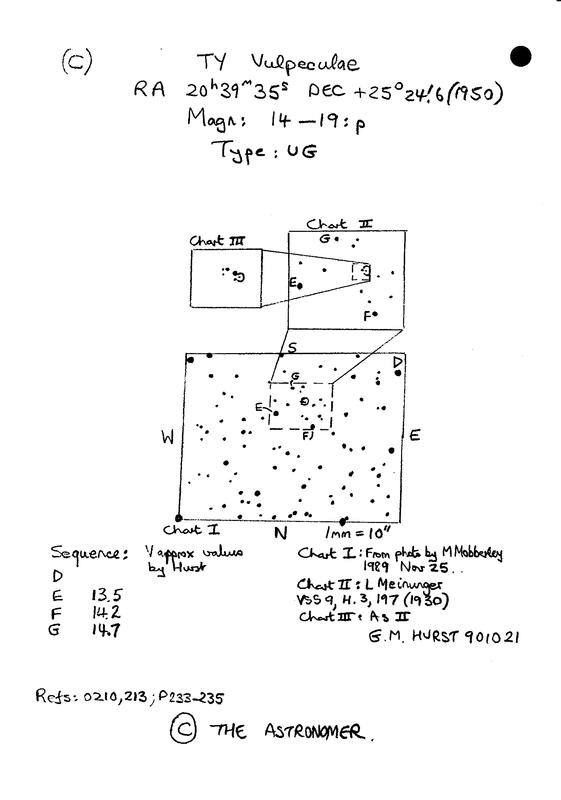 (C)
TY Vulpeculae
RA 20ʰ39ᵐ35ˢ DEC +25°24!6 (1950)
Magn: 14 – 19: p
Type: UG
Chart II
G
Chart III
E
F
S
D
G
E
W
E
F
Chart I
N
1mm = 10"
Sequence: V approx values
by Hurst
D
E 13.5
F 14.2
G 14.7
Chart I: From photo by M Mobberley
1989 Nov 25..
Chart II: L Meinunger
VSS 9, H.3, 197 (1930)
Chart III: As II
G.M. HURST 901021
Refs: 0210,213; P233-235
© THE ASTRONOMER.